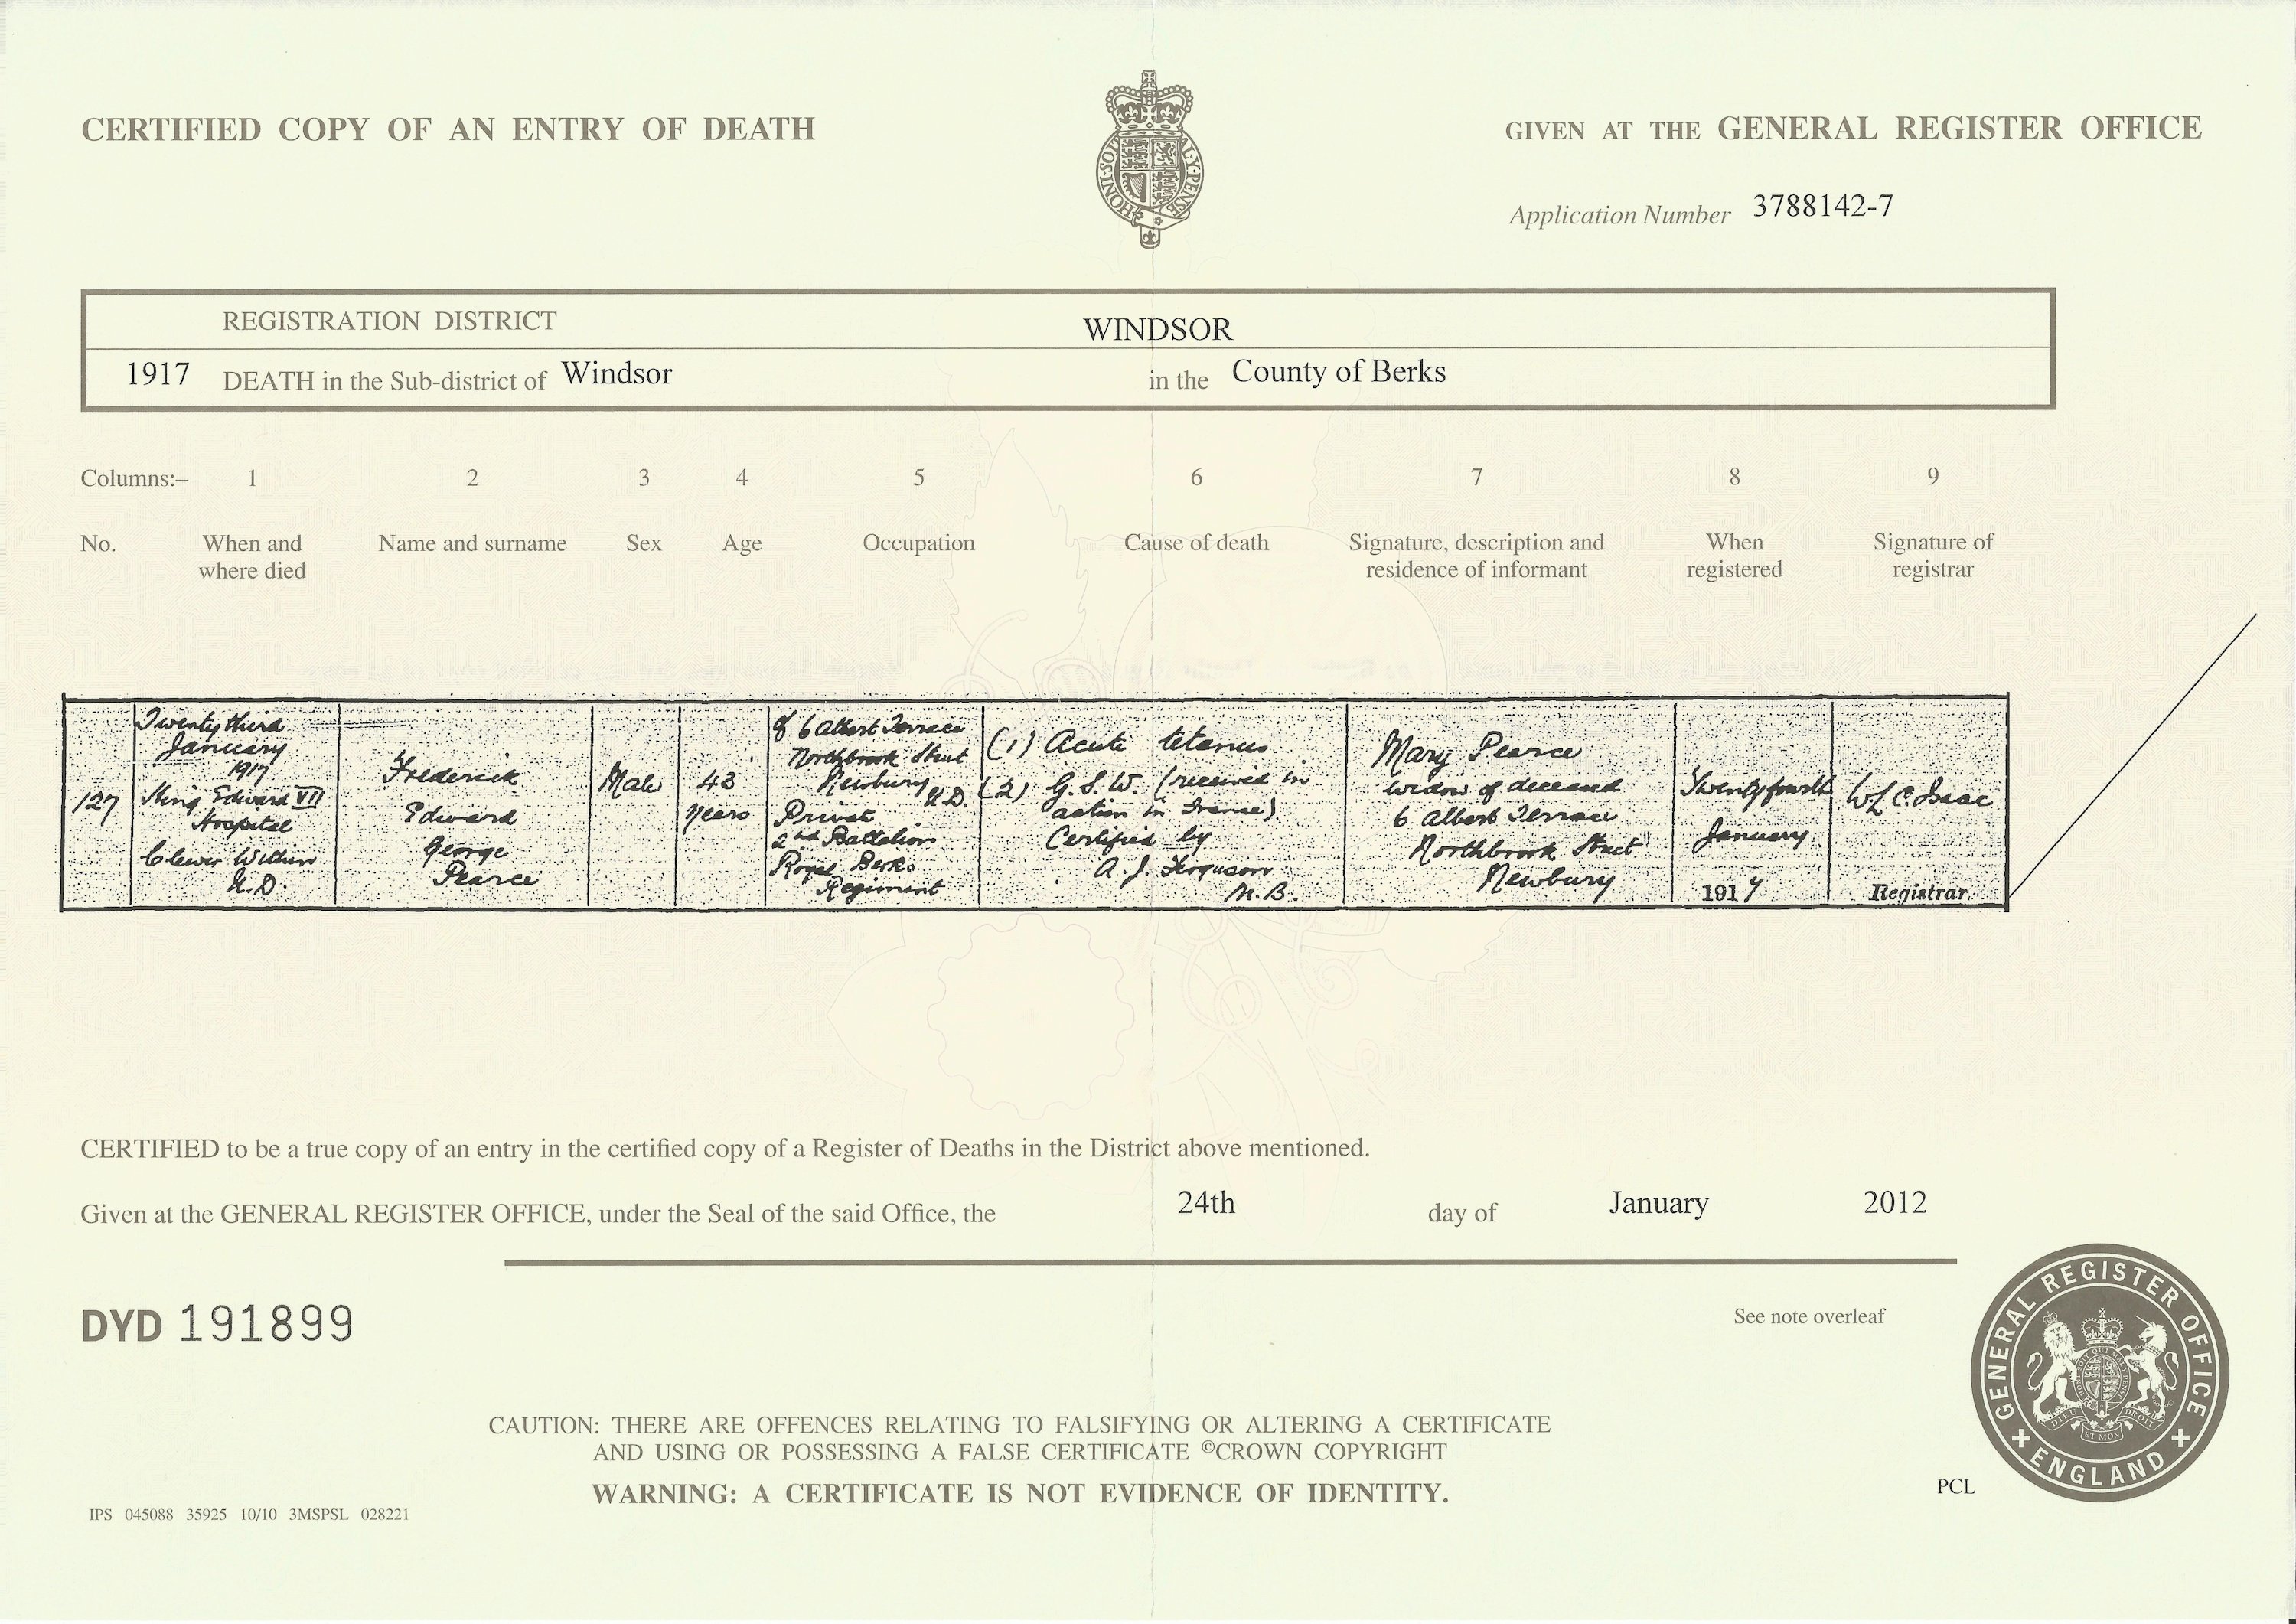 CERTIFIED COPY OF AN ENTRY OF DEATH
GIVEN AT THE GENERAL REGISTER OFFICE
HONI·SOI
AL·Y·PENSE
Application Number 3788142-7
REGISTRATION DISTRICT WINDSOR
1917 DEATH in the Sub-district of Windsor in the County of Berks
Columns:– 1 2 3 4 5 6 7 8 9
No.
When and
where died
Name and surname
Sex
Age
Occupation
Cause of death
Signature, description and
residence of informant
When
registered
Signature of
registrar
127
Twenty third
January
1917
King Edward VII
Hospital
Clewer Within
U.D.
Frederick
Edward
George
Pearce
Male
43
years
of 6 Albert Terrace
Northbrook Street
Newbury U.D.
Private
2nd Battalion
Royal Berks
Regiment
(1) Acute tetanus
(2) G.S.W. (received in
action in France)
Certified by
A. J. Ferguson
M.B.
Mary Pearce
widow of deceased
6 Albert Terrace
Northbrook Street
Newbury
Twenty fourth
January
1917
C. Isaac
Registrar
CERTIFIED to be a true copy of an entry in the certified copy of a Register of Deaths in the District above mentioned.
Given at the GENERAL REGISTER OFFICE, under the Seal of the said Office, the 24th day of January 2012
DYD 191899
See note overleaf
GENERAL REGISTER OFFICE
ENGLAND
DIEU ET MON DROIT
CAUTION: THERE ARE OFFENCES RELATING TO FALSIFYING OR ALTERING A CERTIFICATE
AND USING OR POSSESSING A FALSE CERTIFICATE ©CROWN COPYRIGHT
WARNING: A CERTIFICATE IS NOT EVIDENCE OF IDENTITY.
PCL
IPS 045088 35925 10/10 3MSPSL 028221